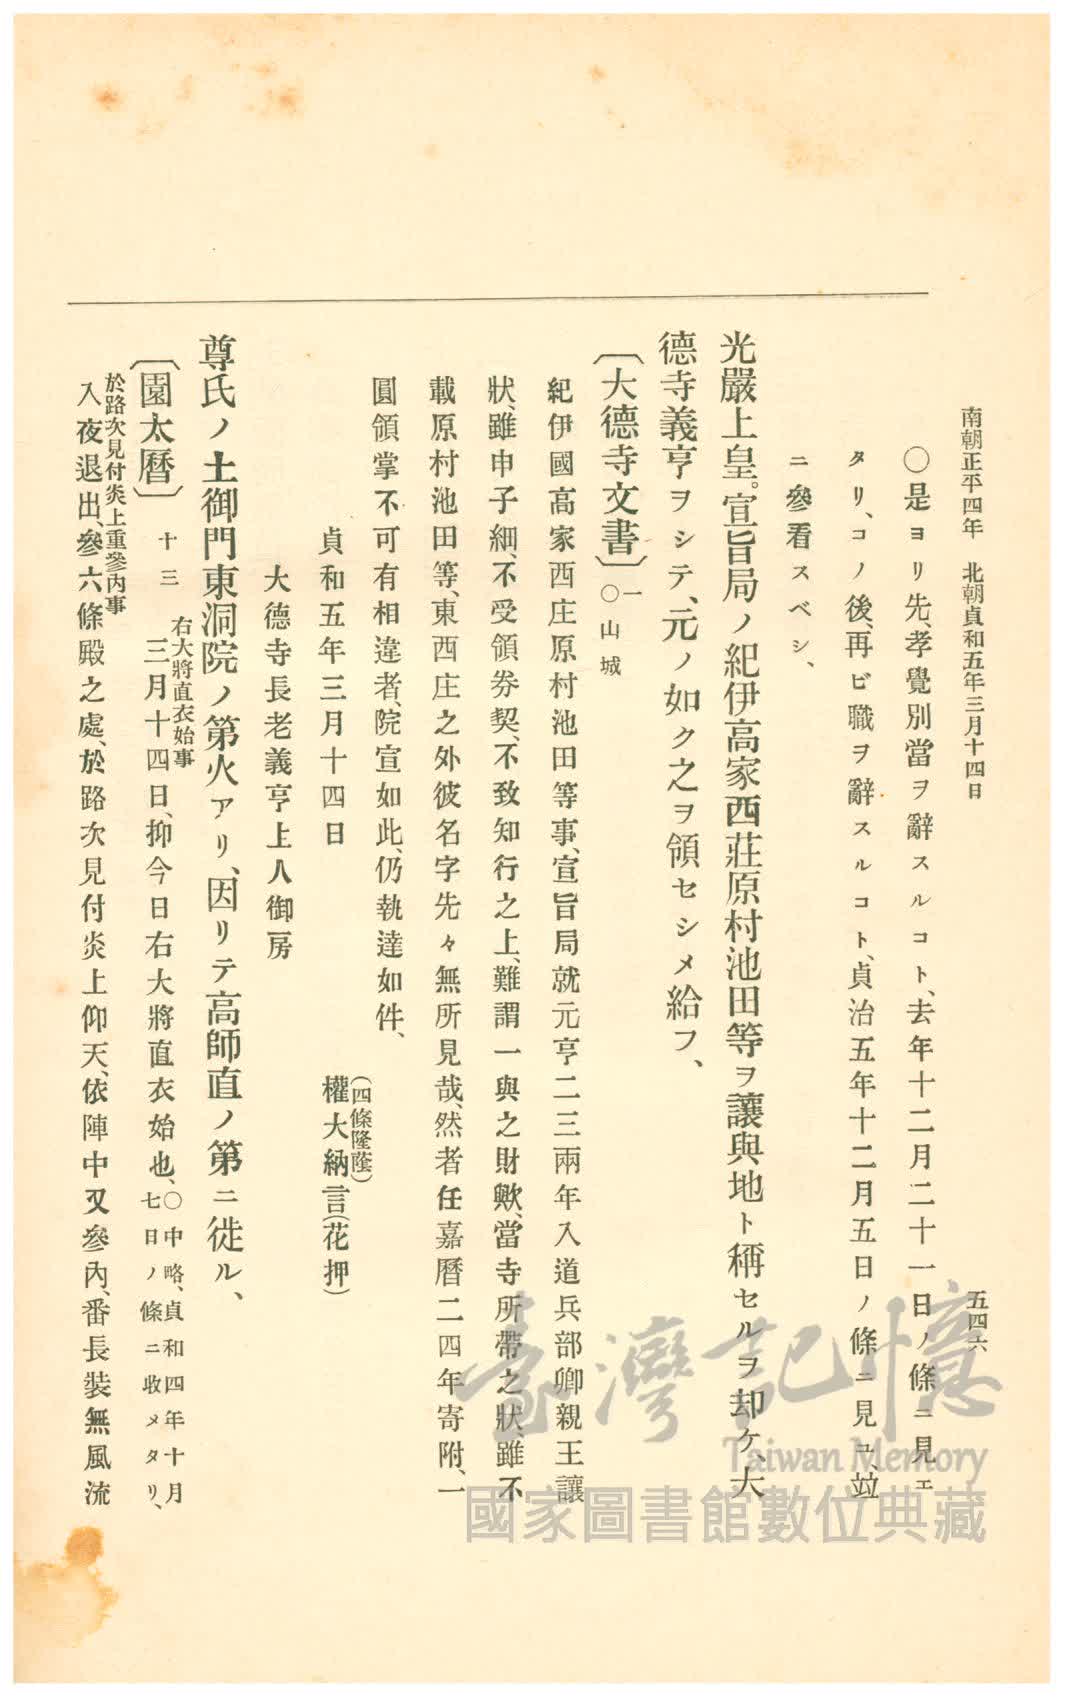 南朝正平四年　北朝貞和五年三月十四日
五四六
○是ヨリ先、孝覺別當ヲ辭スルコト、去年十二月二十一日ノ條ニ見エ
タリ、コノ後、再ビ職ヲ辭スルコト、貞治五年十二月五日ノ條ニ見ユ、竝
ニ參看スベシ、
光嚴上皇。宣旨局ノ紀伊高家西莊原村池田等ヲ讓與地ト稱セルヲ却ケ、大
德寺義亨ヲシテ、元ノ如ク之ヲ領セシメ給フ、
〔大德寺文書〕一○山城
紀伊國高家西庄原村池田等事、宣旨局就元亨二三兩年入道兵部卿親王讓
狀、雖申子細、不受領券契、不致知行之上、難謂一與之財歟、當寺所帶之狀、雖不
載原村池田等、東西庄之外彼名字先々無所見哉、然者任嘉曆二四年寄附、一
圓領掌不可有相違者、院宣如此、仍執達如件、
(四條隆蔭)
貞和五年三月十四日　權大納言(花押)
大德寺長老義亨上人御房
尊氏ノ土御門東洞院ノ第火アリ、因リテ高師直ノ第ニ徙ル、
右大將直衣始事
〔園太曆〕十三　三月十四日、抑今日右大將直衣始也、○中略、貞和四年十月
七日ノ條ニ收メタリ、
於路次見付炎上重參內事
入夜退出、參六條殿之處、於路次見付炎上仰天、依陣中又參內、番長裝無風流
臺灣記憶
Taiwan Memory
國家圖書館數位典藏